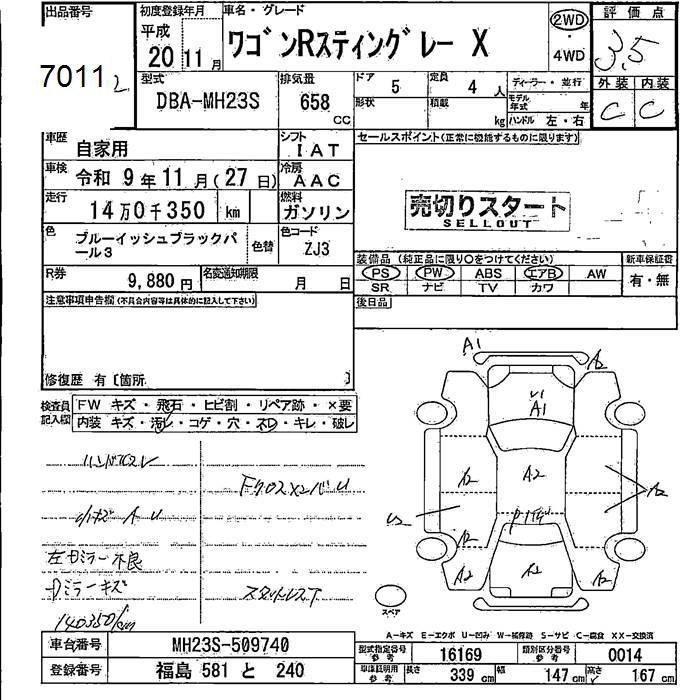 出品番号
7011 2
初度登録年月
平成
20 11月
車名・グレード
ワゴンRスティングレー X
2WD
・
4WD
評価点
3.5
外装 内装
C C
型式
DBA-MH23S
排気量
658
CC
ドア 5
定員 4人
形状
積載 kg
ディーラー・並行
モデル年式 年
ハンドル 左・右
車歴
自家用
シフト
IAT
セールスポイント(正常に機能するものに限ります)
車検
令和 9年11月(27日)
冷房
AAC
走行
14万0千350 km
燃料
ガソリン
売切りスタート
SELLOUT
色
ブルーイッシュブラックパール3
色替
色コード
ZJ3
装備品(純正品に限り○をつけてください)
新車保証書
PS PW ABS エアB AW
SR ナビ TV カワ
有・無
R券
9,880円
名変通知期限
月 日
後日品
注意事項申告欄(不具合内容等は具体的に記入して下さい)
修復歴 有〔箇所 〕
検査員記入欄
FW キズ・飛石・ヒビ割・リペア跡・×要
内装 キズ・汚レ・コゲ・穴・スレ・キレ・破レ
左Dミラー不良
Dミラーキズ
スタットレスT
140350km
A1
A2
A1
A2
A2
A2
A2
A2
A2
A2
スペア
A-キズ E-エクボ U-凹み W-補修跡 S-サビ C-腐食 XX-交換済
車台番号
MH23S-509740
登録番号
福島 581 と 240
型式指定番号
参考
16169
類別区分番号
参考
0014
車庫証明用
参考
長さ 339 cm
幅 147 cm
高さ 167 cm